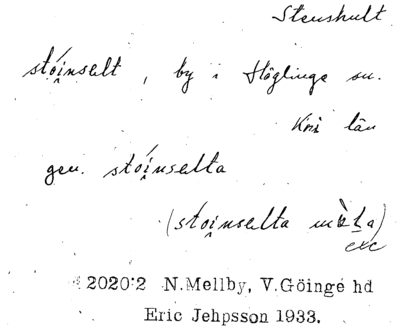 Stenshult
stóinselt, by i Höglinge sn.
Kri län
gen. stóinselta
(stoinselta
exc
2020:2 N.Mellby, V.Göinge hd
Eric Jehpsson 1933.